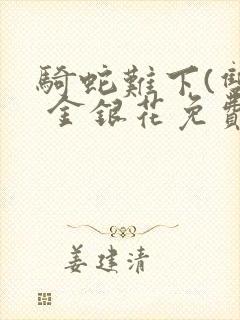 騎蛇難下(雙
金銀花免費
姜建清